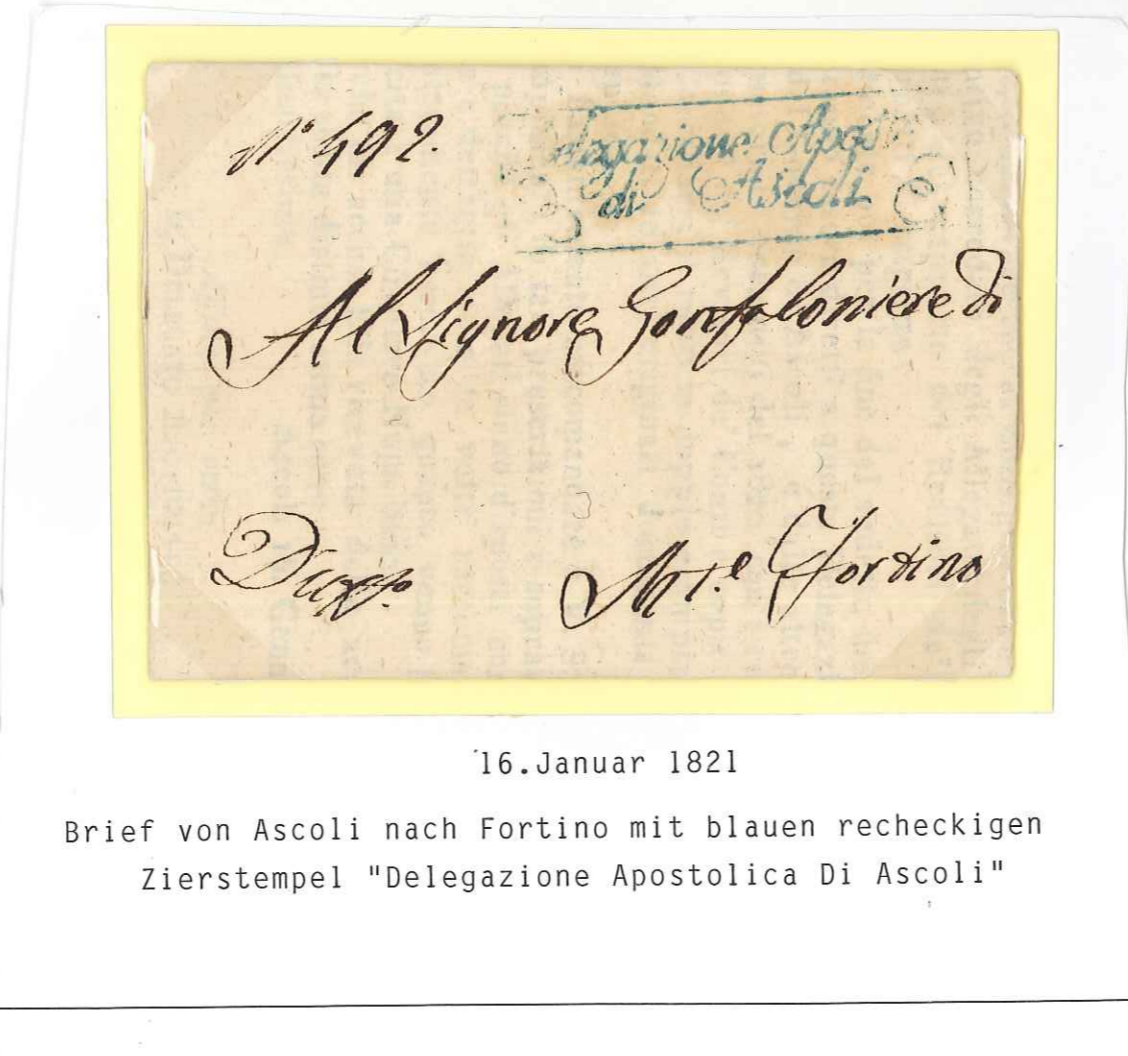 N° 492.
Delegazione Apost
di Ascoli
Al Signore Gonfaloniere di
Mte. Fortino
16.Januar 1821
Brief von Ascoli nach Fortino mit blauen recheckigen
Zierstempel "Delegazione Apostolica Di Ascoli"